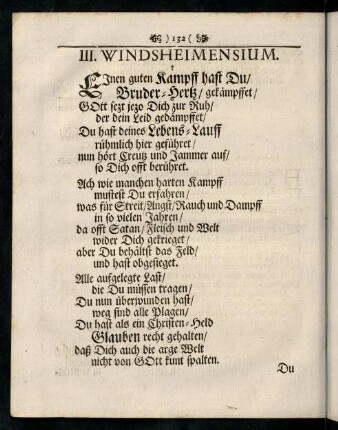 ) 132 (
III. WINDSHEIMENSIUM.
†
EInen guten Kampff hast Du/
Bruder-Hertz/ gekämpffet/
GOtt sezt jezo Dich zur Ruh/
der dein Leid gedämpffet/
Du hast deines Lebens-Lauff
rühmlich hier geführet/
nun hört Creutz und Jammer auf/
so Dich offt berühret.
Ach wie manchen harten Kampff
mustest Du erfahren/
was für Streit/ Angst/ Rauch und Dampff
in so vielen Jahren/
da offt Satan/ Fleisch und Welt
wider Dich gekrieget/
aber Du behältst das Feld/
und hast obgesieget.
Alle aufgelegte Last/
die Du müssen tragen/
Du nun überwunden hast/
weg sind alle Plagen/
Du hast als ein Christen-Held
Glauben recht gehalten/
daß Dich auch die arge Welt
nicht von GOtt kunt spalten.
Du